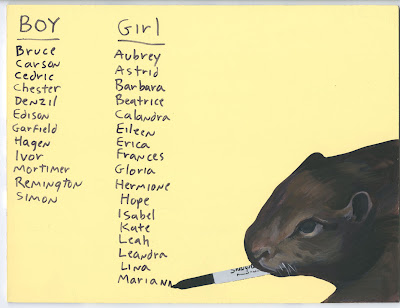 BOY
Bruce
Carson
Cedric
Chester
Denzil
Edison
Garfield
Hagen
Ivor
Mortimer
Remington
Simon
Girl
Aubrey
Astrid
Barbara
Beatrice
Calandra
Eileen
Erica
Frances
Gloria
Hermione
Hope
Isabel
Kate
Leah
Leandra
Lina
Mariann